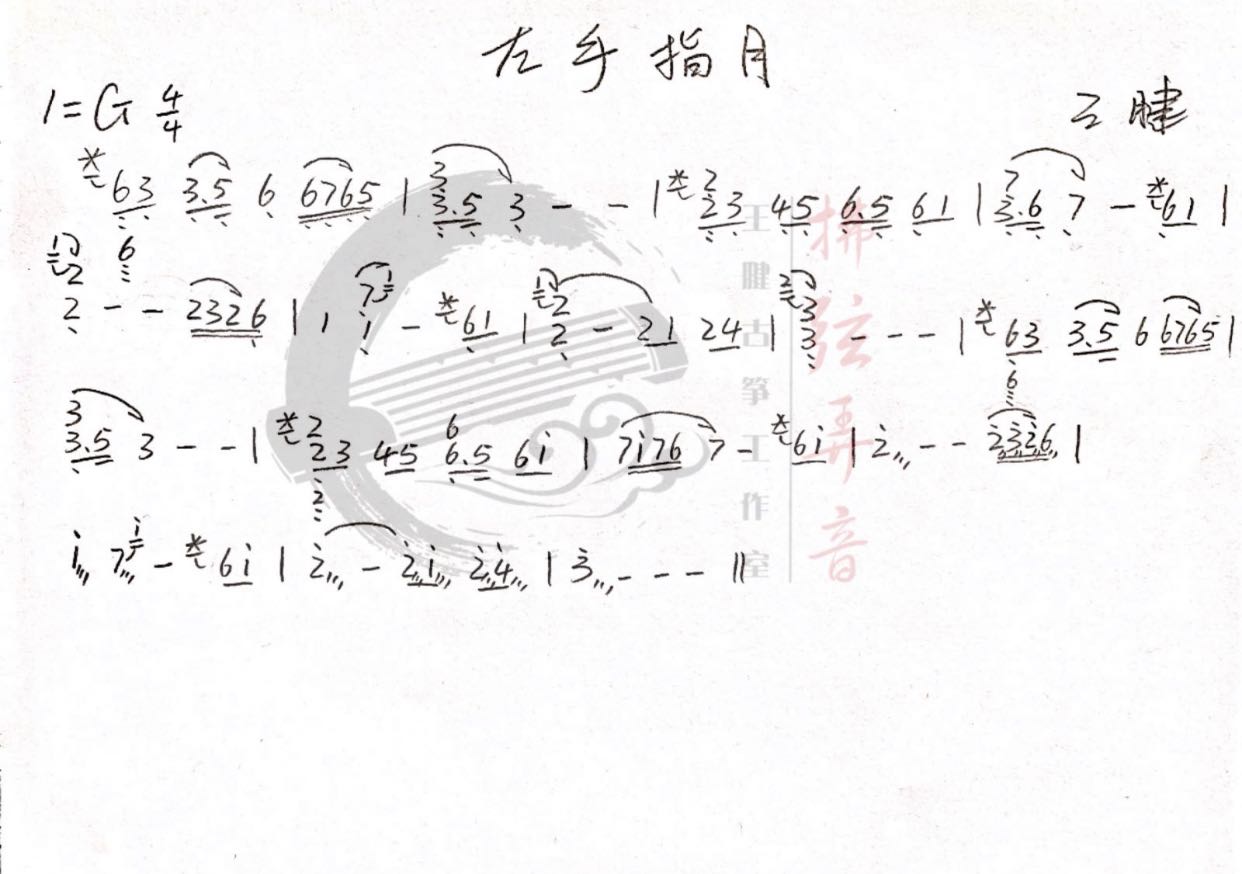 左手指月
1=G 4/4
王腱
*63 3.5 6 6765 | 3.5 3 - - | *23 45 6.5 61 | 3.6 7 - *61 |
2 - - 2326 | 1 1 - *61 | 2 - 21 24 | 3 - - - | *63 3.5 6 6765 |
3.5 3 - - | *23 45 6.5 6i | 7i76 7 - *6i | 2 - - 2326 |
i 7 - *6i | 2 - 2i 24 | 3 - - - ||
王腱古筝工作室
拂弦弄音